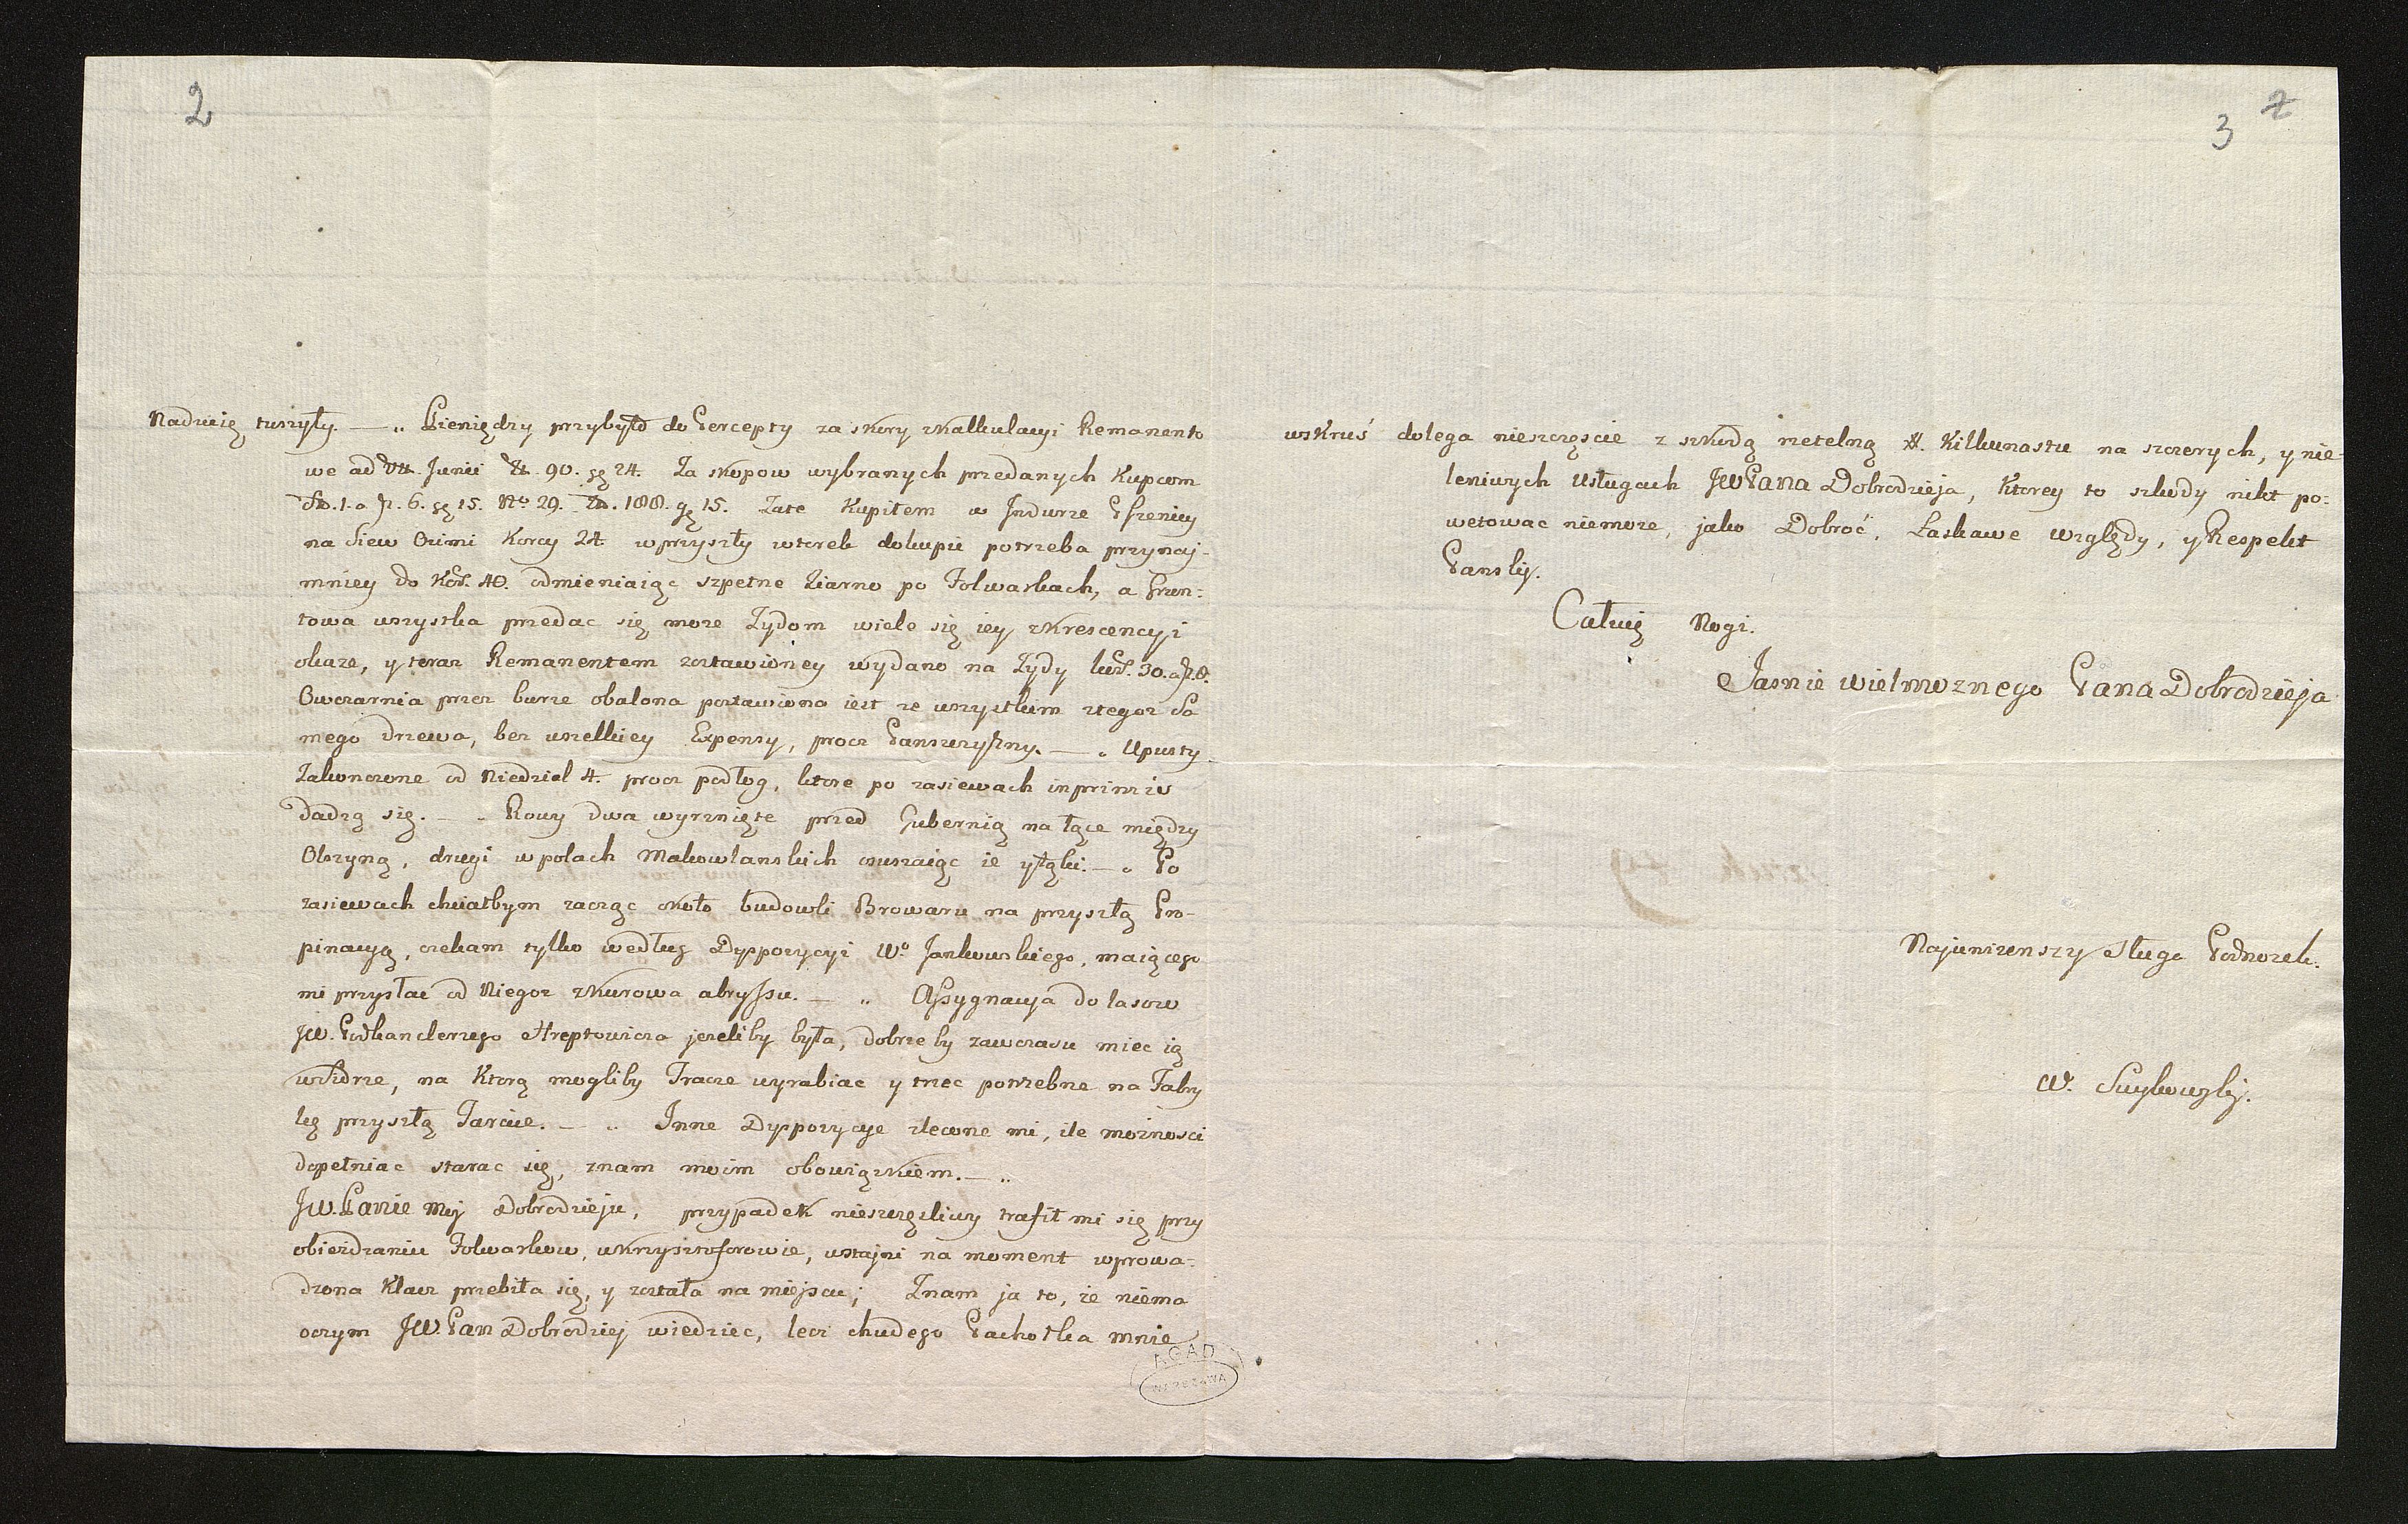 2
Nadzieię tuszyły. — „ Pieniędzy przybyło do Percepty za skory zkalkulacyi Remanento
we ad Junii 90. gę 24. Za skopow wybranych przedanych Kupcom
1. a 6. gę 15. No 29. 188. gę 15. Zate Kupiłem w Indurze Pszenicy
na Siew Ozimi Korcy 24. wprzyszły wtorek dokupie potrzeba przynaj-
mniey do Kor. 40. odmieniaiąc szpetne Ziarno po Folwarkach, a Grun-
towa wszystka przedac się może Żydom wiele się iey zkrescencyi
okaże, y teraz Remanentem zostawioney wydano na Żydy 30. a
Owczarnia przez burze obalona postawiona iest ze wszystkim ztegoż Sa
mego drzewa, bez wszelkiey Expensy, procz Panszczyzny. — „ Upusty
Zakonczone od Niedziel 4. procz podłog, ktore po zasiewach inprimis
dadzą się. — „ Rowy dwa wyrznięte przed Gubernią na łące między
Olszyną, drugi w polach Makowlanskich osuszaiąc ie y łąki. — „ Po
zasiewach chciałbym zacząc około budowli Browaru na przyszłą Pro-
pinacyą, czekam tylko według Dyspozycyi Wo Jankowskiego, maiącego
mi przysłac od Niegoż zkurowa abryssu. — „ Assygnacya do lasow
JW. Podkanclerzego Chreptowicza jezeliby była, dobrze by zawczasu miec ią
wSidrze, na Ktorą mogliby Tracze wyrabiac y trzec potrzebne na Fabry
kę przyszłą Tarcice. — „ Inne Dyspozycye zlecone mi, ile możnosci
dopełniac starac się, znam moim obowiązkiem. — „
JW. Panie Mój Dobrodzieju, przypadek nieszczęsliwy trafił mi się przy
obieżdzaniu Folwarkow, wKrzysztoforowie, wstajni na moment wprowa-
dzona Klacz przebiła się, y została na miejscu; Znam ja to, że niema
oczym JW. Pan Dobrodziej wiedziec, lecz chudego Pachołka mnie
AGAD
WARSZAWA
3
2
wskruś dolega nieszczęscie z szkodą rzetelną Kilkunastu na szczerych, y nie-
leniwych usługach JWPana Dobrodzieja, Ktorey to szkody nikt po-
wetowac niemoże, jako Dobroć, Łaskawe względy, y Respekt
Panski.
Całuię Nogi.
Jasnie wielmoznego Pana Dobrodzieja
Najunizenszy Sługa Podnozek.
W.